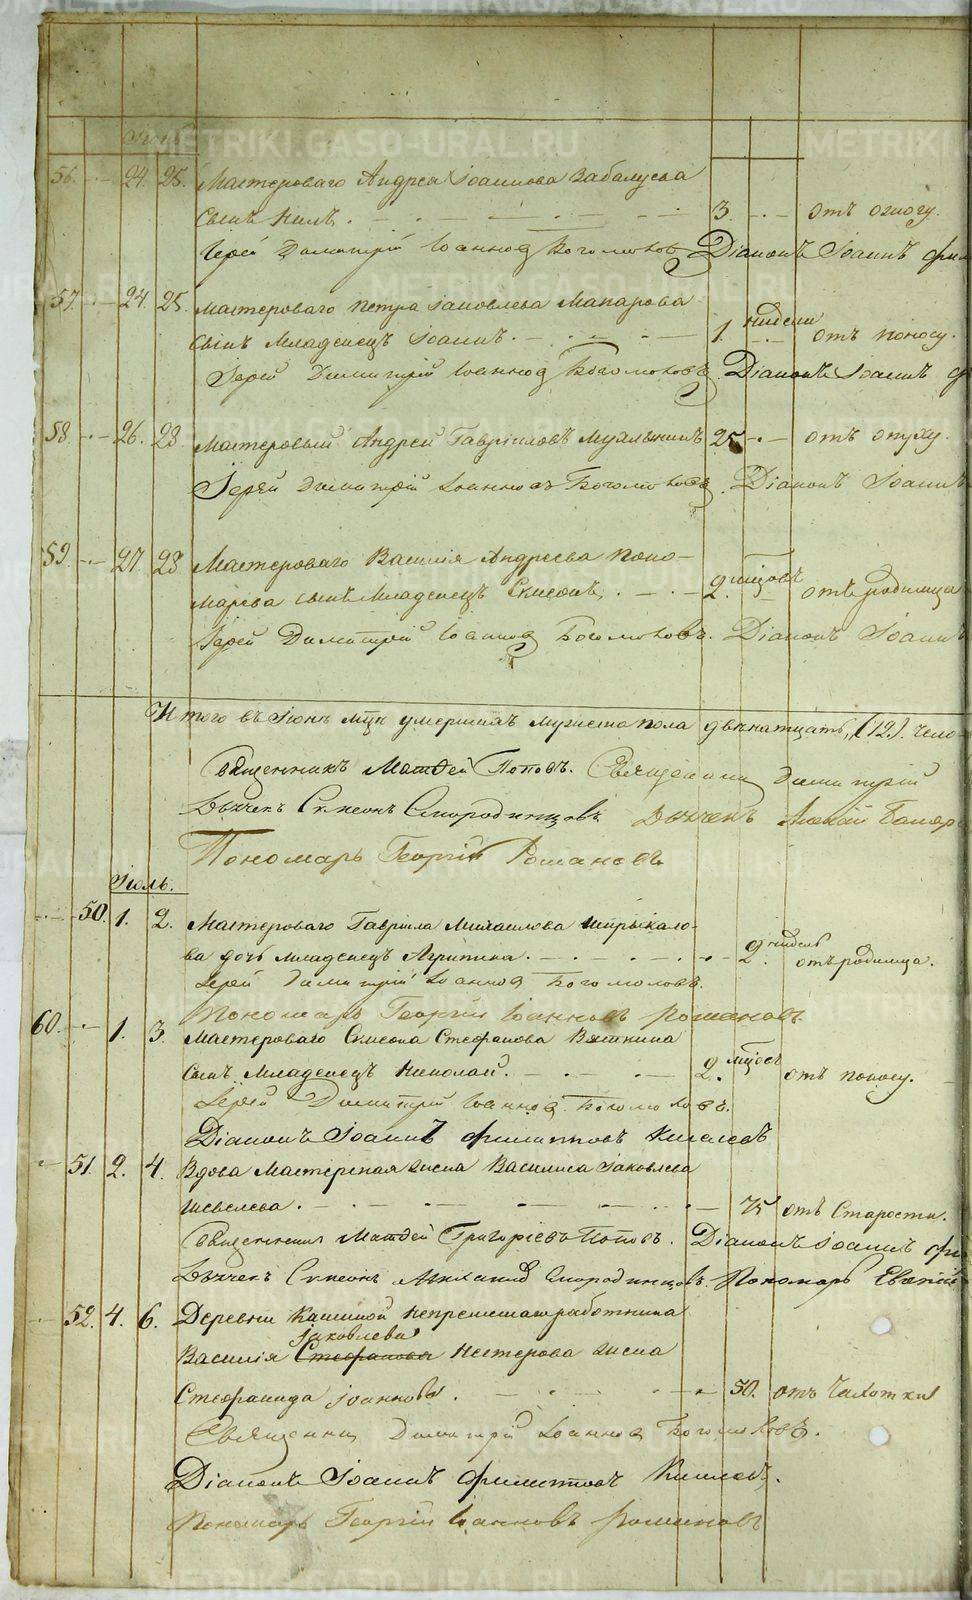 METRIKI.GASO-URAL.RU
Іюнь
56. 24. 25. Мастероваго Андрея Іоаннова Забалуева
сынъ Нилъ. 3. отъ огногу.
Іерей Димитрій Іоанновъ Богомоловъ Діаконъ Іоаннъ
57. 24. 25. Мастероваго Петра Іаковлева Макарова
сынъ Младенецъ Іоаннъ. 1. недели отъ поносу.
Іерей Димитрій Іоанновъ Богомоловъ. Діаконъ Іоаннъ
58. 26. 28. Мастеровый Андрей Гавріиловъ 25 отъ опуху.
Іерей Димитрій Іоанновъ Богомоловъ. Діаконъ Іоаннъ
59. 27. 28 Мастероваго Василія Андреева Поно-
марева сынъ Младенецъ Симеонъ. 2. мѣсцовъ отъ родимца
Іерей Димитрій Іоанновъ Богомоловъ. Діаконъ Іоаннъ
Итого въ Іюнѣ мцѣ умершихъ мужеска пола двенатцать, (12). чело-
Священникъ Матѳей Поповъ. Священник Димитрій
Дьячекъ Симеонъ Смородинцовъ Дьячекъ
Пономарь Георгій Романовъ
Іюль.
50. 1. 2. Мастероваго Гаврила Михаилова Шпрыкало-
ва дочь младенецъ Агрипина. 2. недель отъ родимца.
Іерей Димитрій Іоанновъ Богомоловъ.
Пономарь Георгій Іоанновъ Романовъ.
60. 1. 3. Мастероваго Симеона Стефанова Вяткина
сынъ Младенецъ Николай. 2. мѣсцовъ отъ поносу.
Іерей Димитрій Іоанновъ Богомоловъ.
Діаконъ Іоаннъ Филипповъ Киселевъ
51. 2. 4. Вдова Мастерская жена Василиса Іаковлева
Шевелева. 75 отъ Старости.
Священникъ Матѳей Григоріевъ Поповъ. Діаконъ Іоаннъ
Дьячекъ Симеонъ Михаиловъ Смородинцовъ. Пономарь
52. 4. 6. Деревни Кашиной Непременнаго работника
Іаковлева
Василія Стефанова Нестерова жена
Стефанида Іоаннова. 50. отъ Чахотки
Священникъ Димитрій Іоанновъ Богомоловъ.
Діаконъ Іоаннъ Филипповъ Киселевъ.
Пономарь Георгій Іоанновъ Романовъ